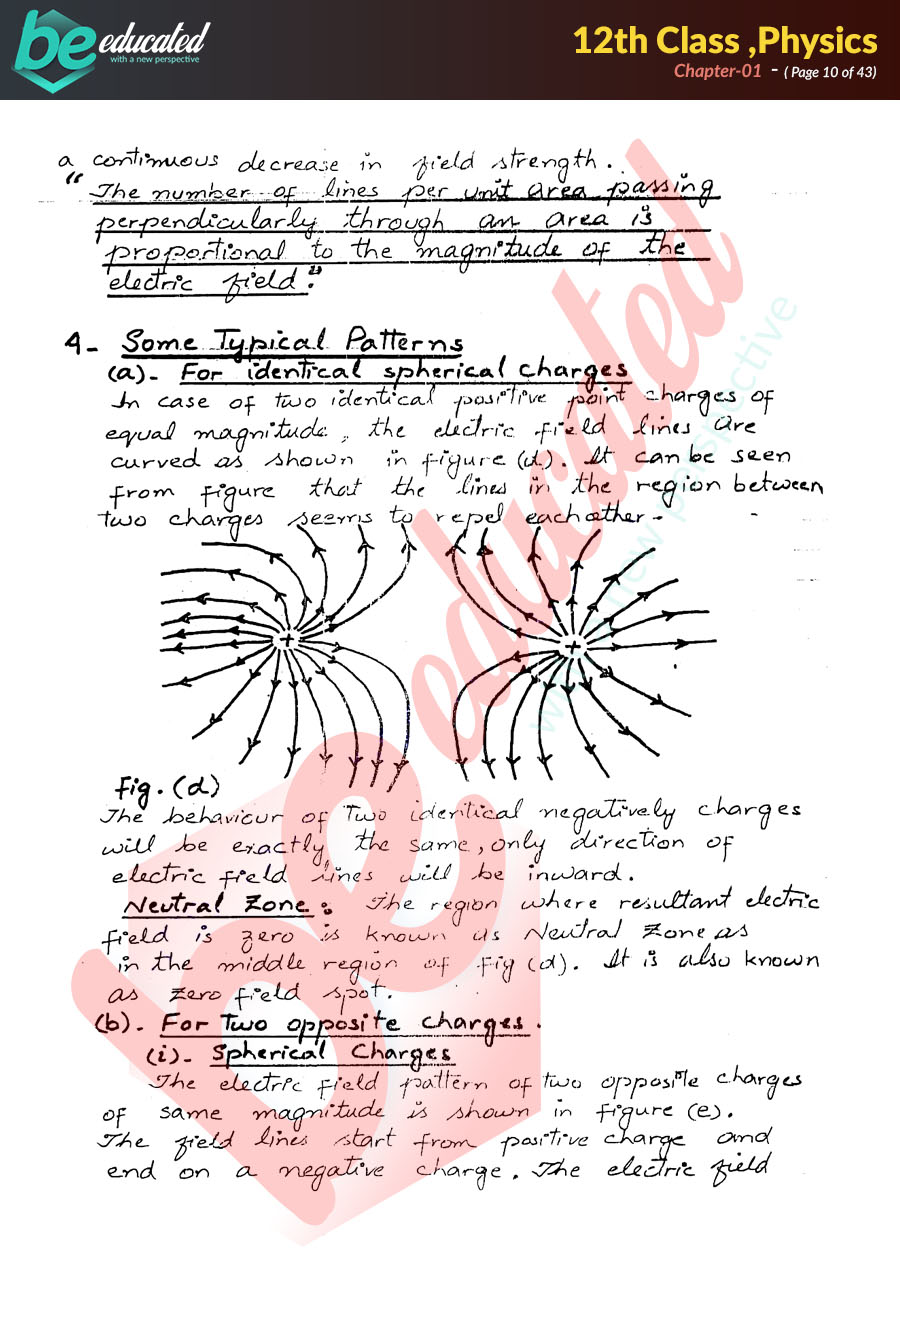 be educated
with a new perspective
12th Class ,Physics
Chapter-01 - ( Page 10 of 43)
a continuous decrease in field strength.
"The number of lines per unit area passing
perpendicularly through an area is
proportional to the magnitude of the
electric field."
4- Some Typical Patterns
(a)- For identical spherical charges
In case of two identical positive point charges of
equal magnitude, the electric field lines are
curved as shown in figure (d). It can be seen
from figure that the lines in the region between
two charges seems to repel eachother-
+ +
Fig. (d)
The behaviour of Two identical negatively charges
will be exactly the same, only direction of
electric field lines will be inward.
Neutral Zone: The region where resultant electric
field is zero is known as Neutral Zone as
in the middle region of fig (d). It is also known
as zero field spot.
(b). For Two opposite charges.
(i)- Spherical Charges
The electric field pattern of two opposite charges
of same magnitude is shown in figure (e).
The field lines start from positive charge and
end on a negative charge. The electric field
be educated
with a new perspective